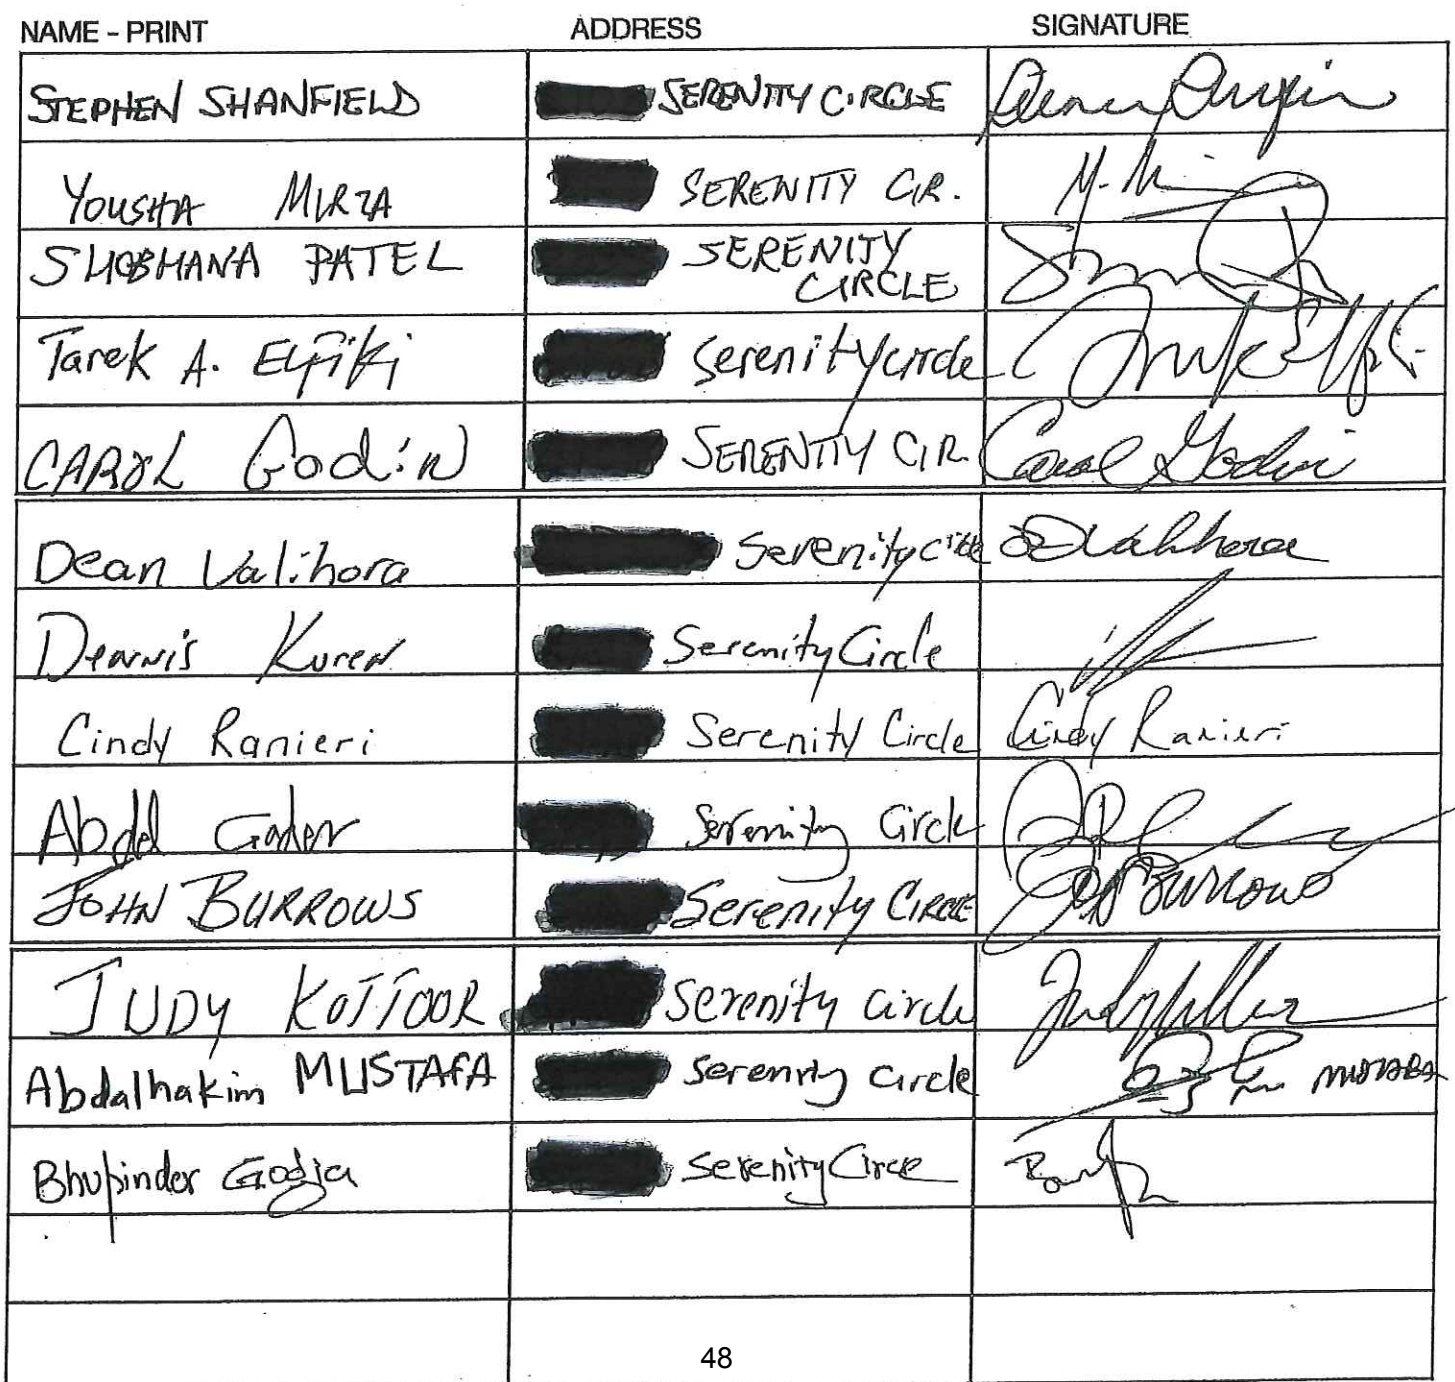 NAME - PRINT ADDRESS SIGNATURE
STEPHEN SHANFIELD SERENITY CIRCLE
YOUSHA MIRZA SERENITY CIR. Y. Mi
SHOBHANA PATEL SERENITY
CIRCLE
Tarek A. Elfiki Serenity circle
CAROL Godin SERENITY CIR. Carol Godin
Dean Valihora Serenity circle D Valihora
Dennis Kuren Serenity Circle
Cindy Ranieri Serenity Circle Cindy Ranieri
Abdel Gader Serenity Circle
JOHN BURROWS Serenity CIRCLE Burrows
JUDY KOTTOOR Serenity Circle
Abdalhakim MUSTAFA Serenity Circle
Bhupinder Godja Serenity Circe
48